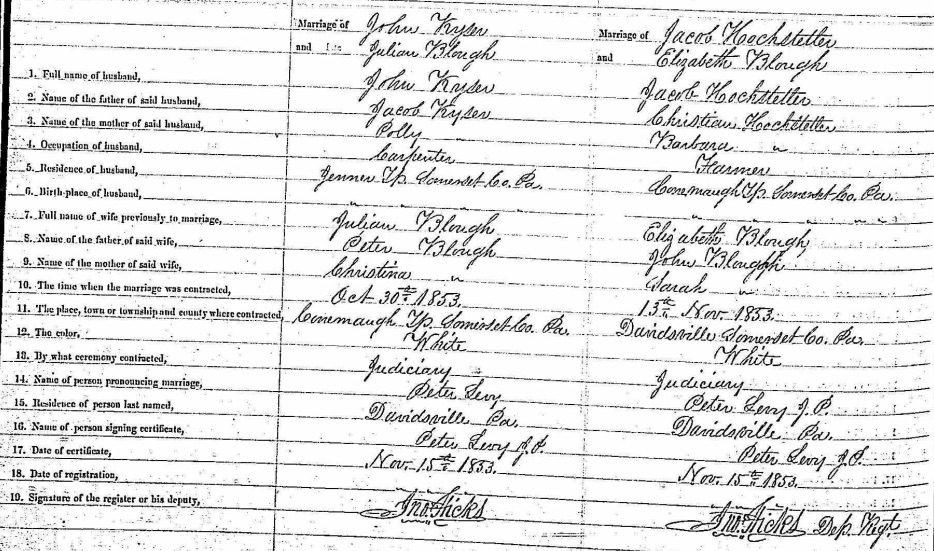 Marriage of John Kyser Marriage of Jacob Hochstetler
and Julian Blough and Elizabeth Blough
1. Full name of husband, John Kyser Jacob Hochstetler
2. Name of the father of said husband, Jacob Kyser Christian Hochstetler
3. Name of the mother of said husband, Polly Barbara "
4. Occupation of husband, Carpenter Farmer
5. Residence of husband, Jenner Tp. Somerset Co. Pa. Conemaugh Tp. Somerset Co. Pa.
6. Birth-place of husband, " " " " " " " " "
7. Full name of wife previously to marriage, Julian Blough Elizabeth Blough
8. Name of the father of said wife, Peter Blough John Blough
9. Name of the mother of said wife, Christina " Sarah "
10. The time when the marriage was contracted, Oct 30th 1853. 13th Nov. 1853.
11. The place, town or township and county where contracted, Conemaugh Tp. Somerset Co. Pa. Davidsville Somerset Co. Pa.
12. The color, White White
13. By what ceremony contracted, Judiciary Judiciary
14. Name of person pronouncing marriage, Peter Levy Peter Levy J.P.
15. Residence of person last named, Davidsville Pa. Davidsville Pa.
16. Name of person signing certificate, Peter Levy J.P. Peter Levy J.P.
17. Date of certificate, Nov. 15th 1853. Nov. 15th 1853.
18. Date of registration,
19. Signature of the register or his deputy, Jno. Hicks Jno. Hicks Dep. Regt.